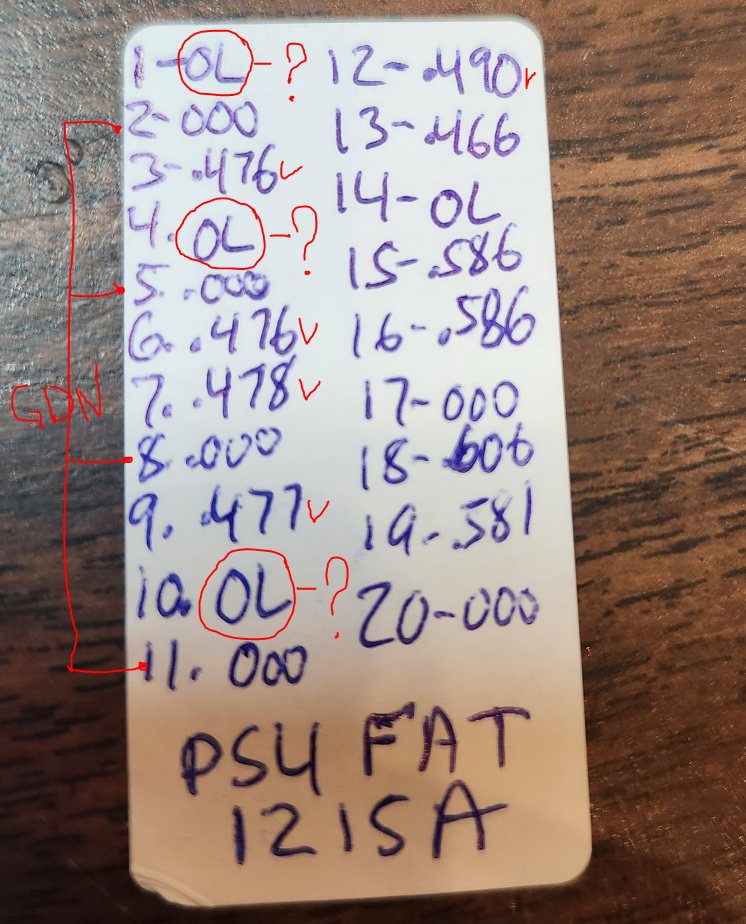 1-OL-?
2-000
3-.476✓
4. OL-?
5. .000
6. .476✓
7. .478✓
GDN
8. .000
9. .477✓
10. OL-?
11. 000
12-.490✓
13-.466
14-OL
15-.586
16-.586
17-000
18-.606
19-.581
20-000
PS4 FAT
1215A